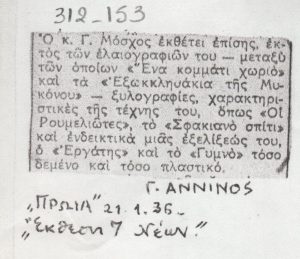 312-153
Ὁ κ. Γ. Μόσχος ἐκθέτει ἐπίσης, ἐκ-
τὸς τῶν ἐλαιογραφιῶν του — μεταξὺ
τῶν ὁποίων «Ἕνα κομμάτι χωριὸ»
καὶ τὰ «Ἐξωκκλησάκια τῆς Μυ-
κόνου» — ξυλογραφίες, χαρακτηρι-
στικὲς τῆς τέχνης του, ὅπως «Οἱ
Ρουμελιῶτες», τὸ «Σφακιανὸ σπίτι»
καὶ ἐνδεικτικὰ μιᾶς ἐξελίξεώς του,
ὁ «Ἐργάτης» καὶ τὸ «Γυμνὸ» τόσο
δεμένο καὶ τόσο πλαστικό.
Γ. ΑΝΝΙΝΟΣ
„ΠΡΩΙΑ" 21.1.36.
„Ἔκθεση 7 Νέων."